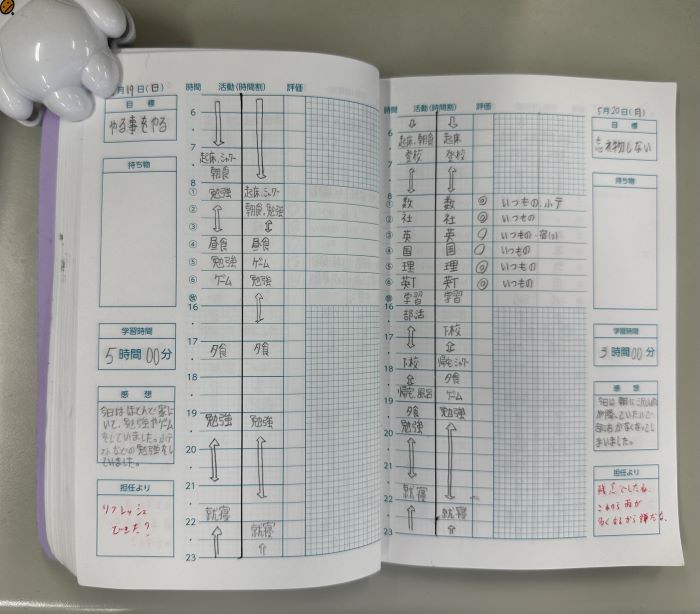 月19日(日)
目標
やる事をやる
持ち物
学習時間
5時間00分
感想
今日はほとんど家に
いて、勉強やゲーム
をしていました。小テ
ストなどの勉強をし
ていました。
担任より
リフレッシュ
できた?
時間 活動(時間割) 評価
6
7
起床、シャワー
朝食
8
① 勉強 起床、シャワー
② 朝食、勉強
③
④ 昼食 昼食
⑤ 勉強 ゲーム
⑥ ゲーム 勉強
放
16
17 夕食 夕食
18
19 勉強 勉強
20
21
就寝
22 就寝
23
時間 活動(時間割) 評価
6
起床、朝食 起床
7 登校 登校
8
① 数 数 ◎ いつもの、小テ
② 社 社 ◎ いつもの
③ 英 英 ○ いつもの
④ 国 国 ○ いつもの
⑤ 理 理 ◎ いつもの
⑥ 英T 英T ◎ いつもの
放 学習 学習
16 部活
下校
17
下校 帰宅、シャワー
18 夕食
帰宅、風呂 ゲーム
19 夕食 勉強
勉強
20
21
就寝
22
就寝
23
5月20日(月)
目標
忘れ物しない
持ち物
学習時間
3時間00分
感想
今日は朝に
が降っていたので
部活がなくなってし
まいました。
担任より
残念でしたね。
これから雨が
多くなるから嫌だな。